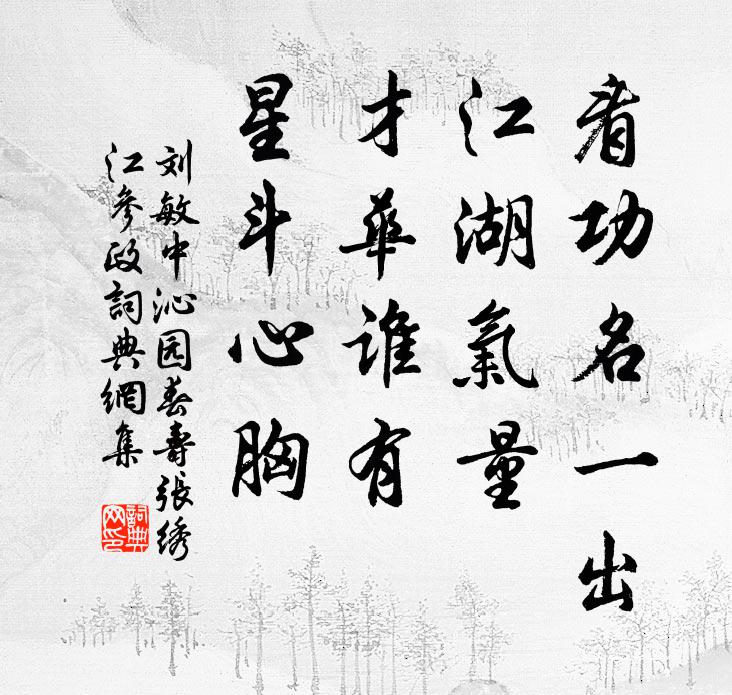 看功名一出
江湖氣量
才華誰有
星斗心胸
刘敏中沁园春壽張綉
江參政詞典網集
詞典网印